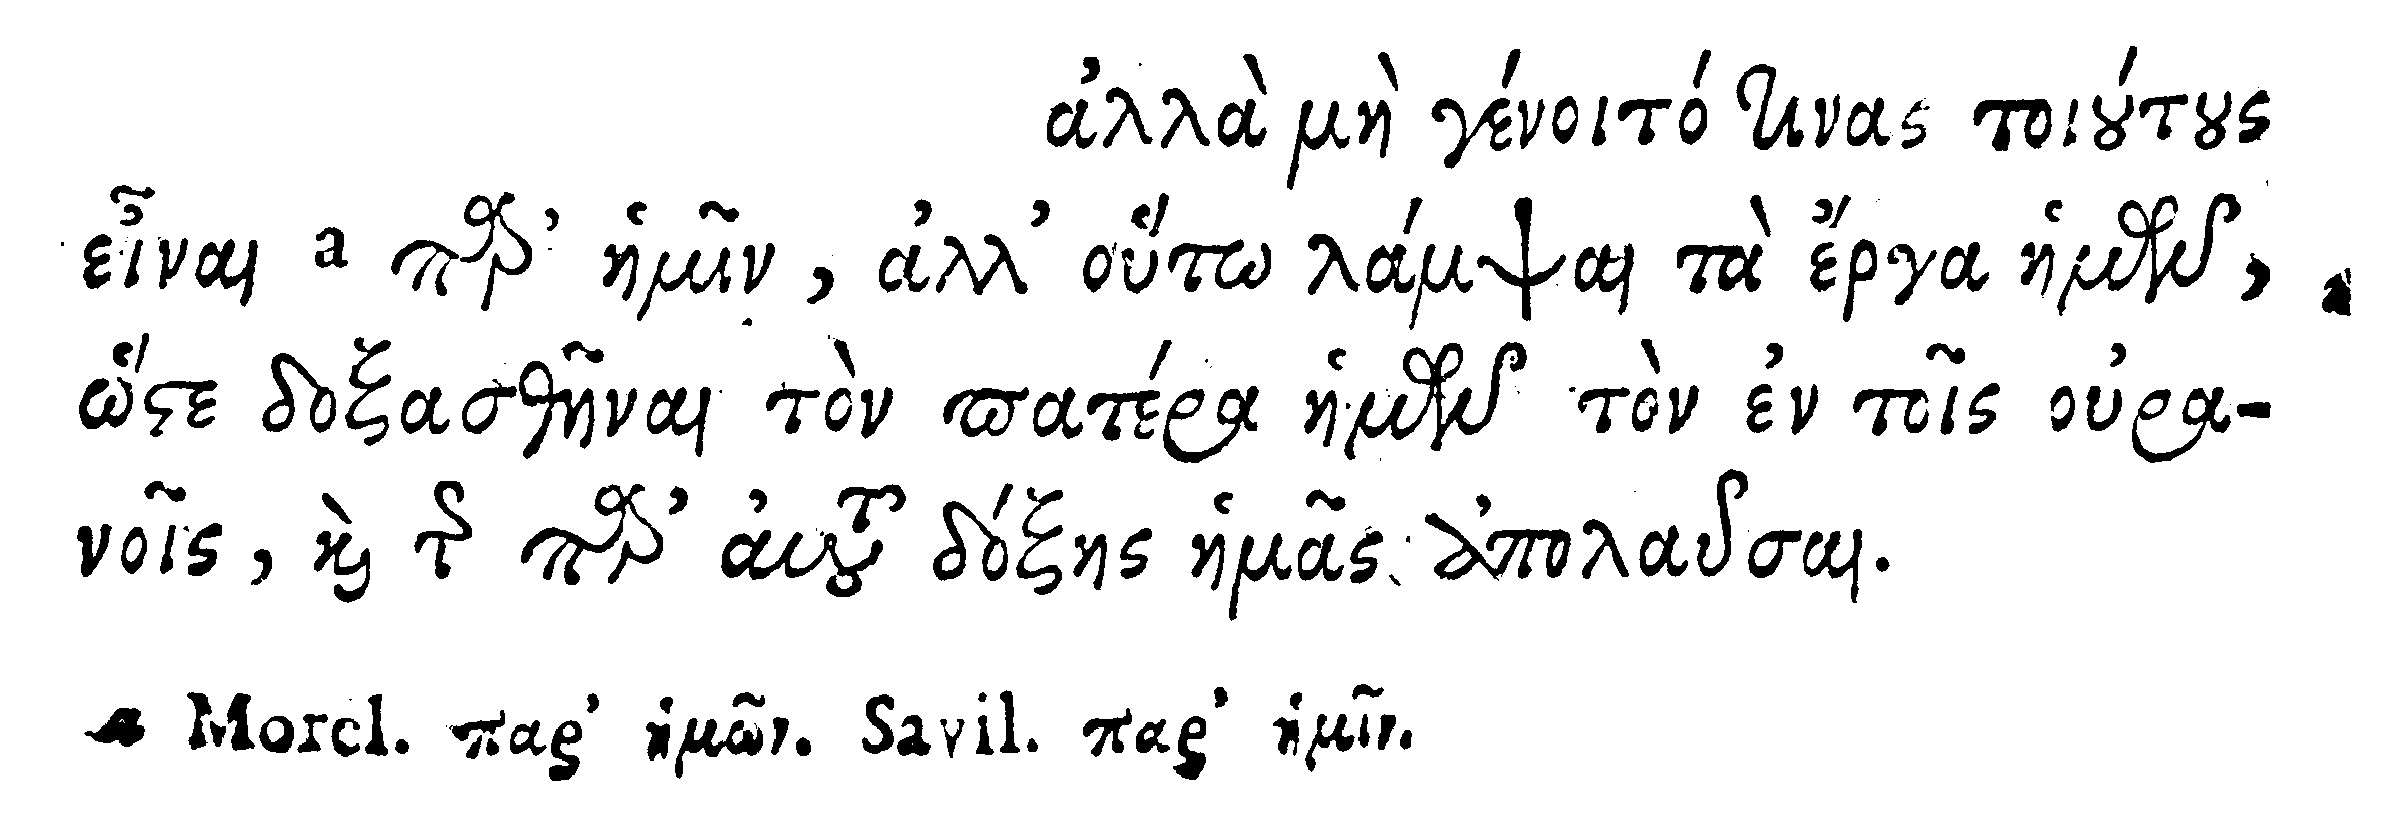 ἀλλὰ μὴ γένοιτό τινας τοιούτους
εἶναι a παρ’ ἡμῖν, ἀλλ’ οὕτω λάμψαι τὰ ἔργα ἡμῶν,
ὥστε δοξασθῆναι τὸν πατέρα ἡμῶν τὸν ἐν τοῖς οὐρα-
νοῖς, καὶ τῆς παρ’ αὐτοῦ δόξης ἡμᾶς ἀπολαῦσαι.
a Morel. παρ’ ἡμῶν. Savil. παρ’ ἡμῖν.